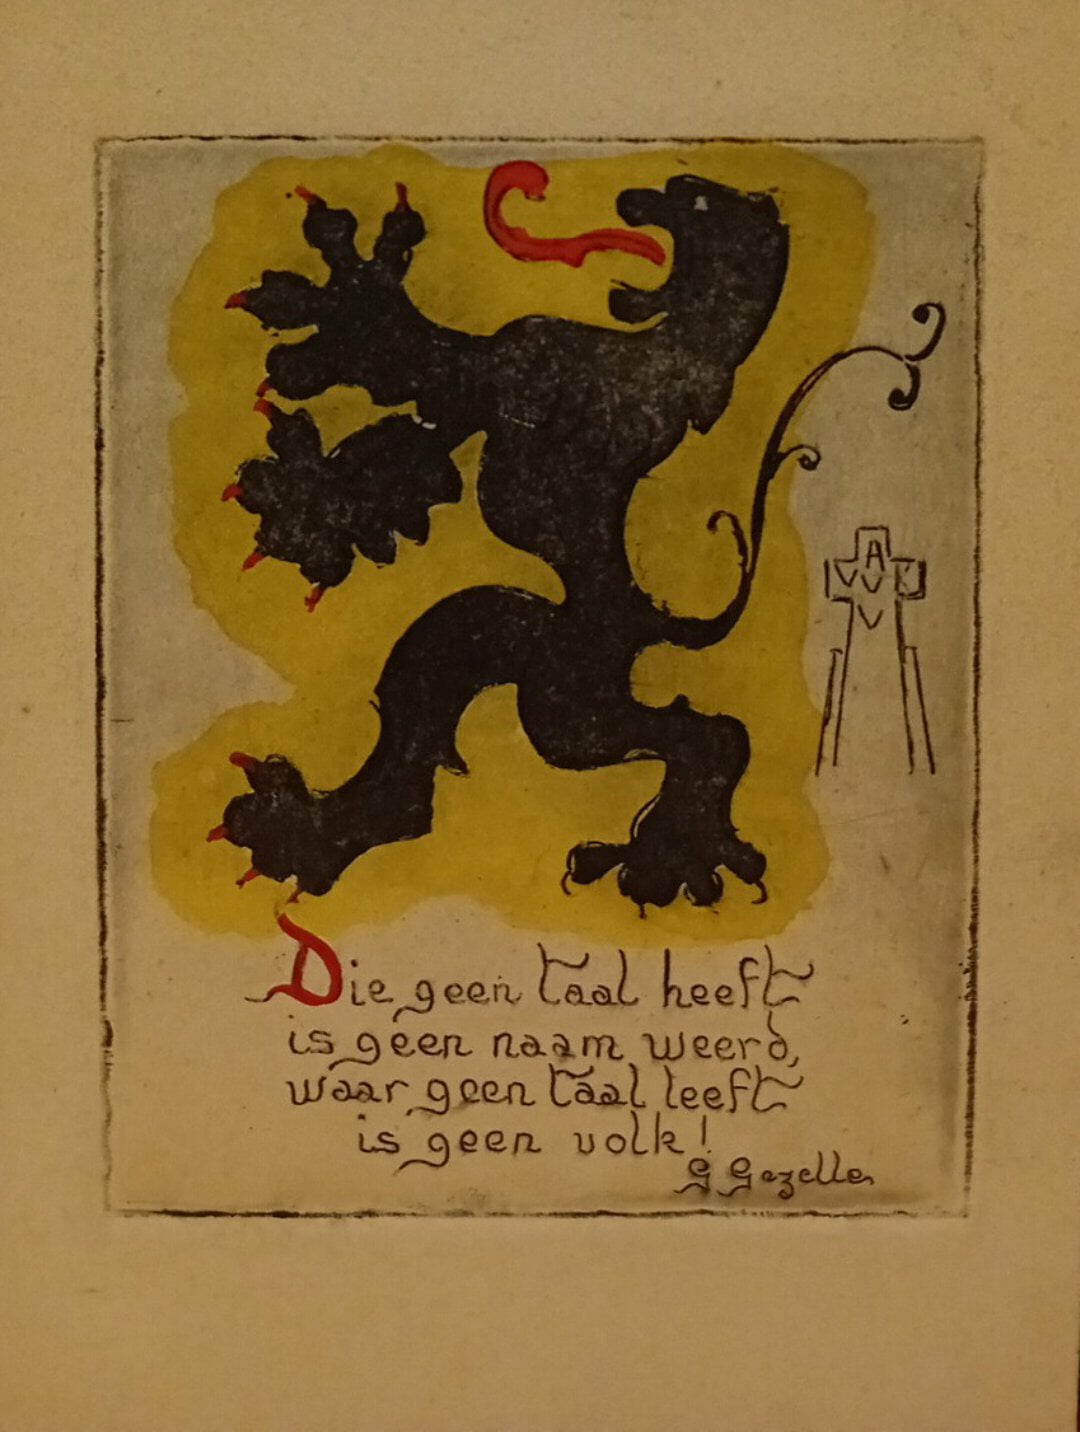 A
VV K
V
Die geen taal heeft
is geen naam weerd,
waar geen taal leeft
is geen volk!
G Gezelle